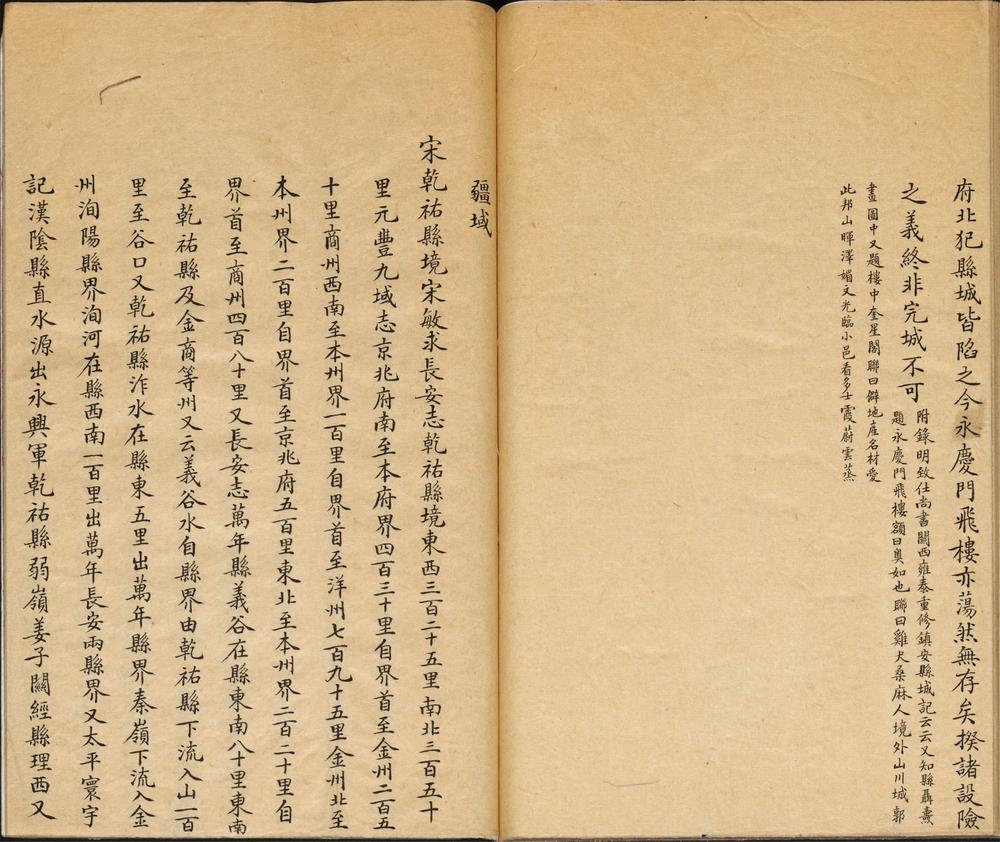 府北犯縣城皆陷之今永慶門飛樓亦蕩然無存矣揆諸設險
之義終非完城不可
附錄明致仕尚書關西雍泰重修鎮安縣城記云云又知縣聶燾
題永慶門飛樓額曰奧如也聯曰雞犬桑麻人境外山川城郭
畫圖中又題樓中奎星閣聯曰僻地產名材愛
此邦山暉澤媚文光臨小邑看多士霞蔚雲蒸
疆域
宋乾祐縣境宋敏求長安志乾祐縣境東西三百二十五里南北三百五十
里元豐九域志京兆府南至本府界四百三十里自界首至金州二百五
十里商州西南至本州界一百里自界首至洋州七百九十五里金州北至
本州界二百里自界首至京兆府五百里東北至本州界二百二十里自
界首至商州四百八十里又長安志萬年縣義谷在縣東南八十里東南
至乾祐縣及金商等州又云義谷水自縣界由乾祐縣下流入山一百
里至谷口又乾祐縣泎水在縣東五里出萬年縣界秦嶺下流入金
州洵陽縣界洵河在縣西南一百里出萬年長安兩縣界又太平寰宇
記漢陰縣直水源出永興軍乾祐縣弱嶺姜子關經縣理西又